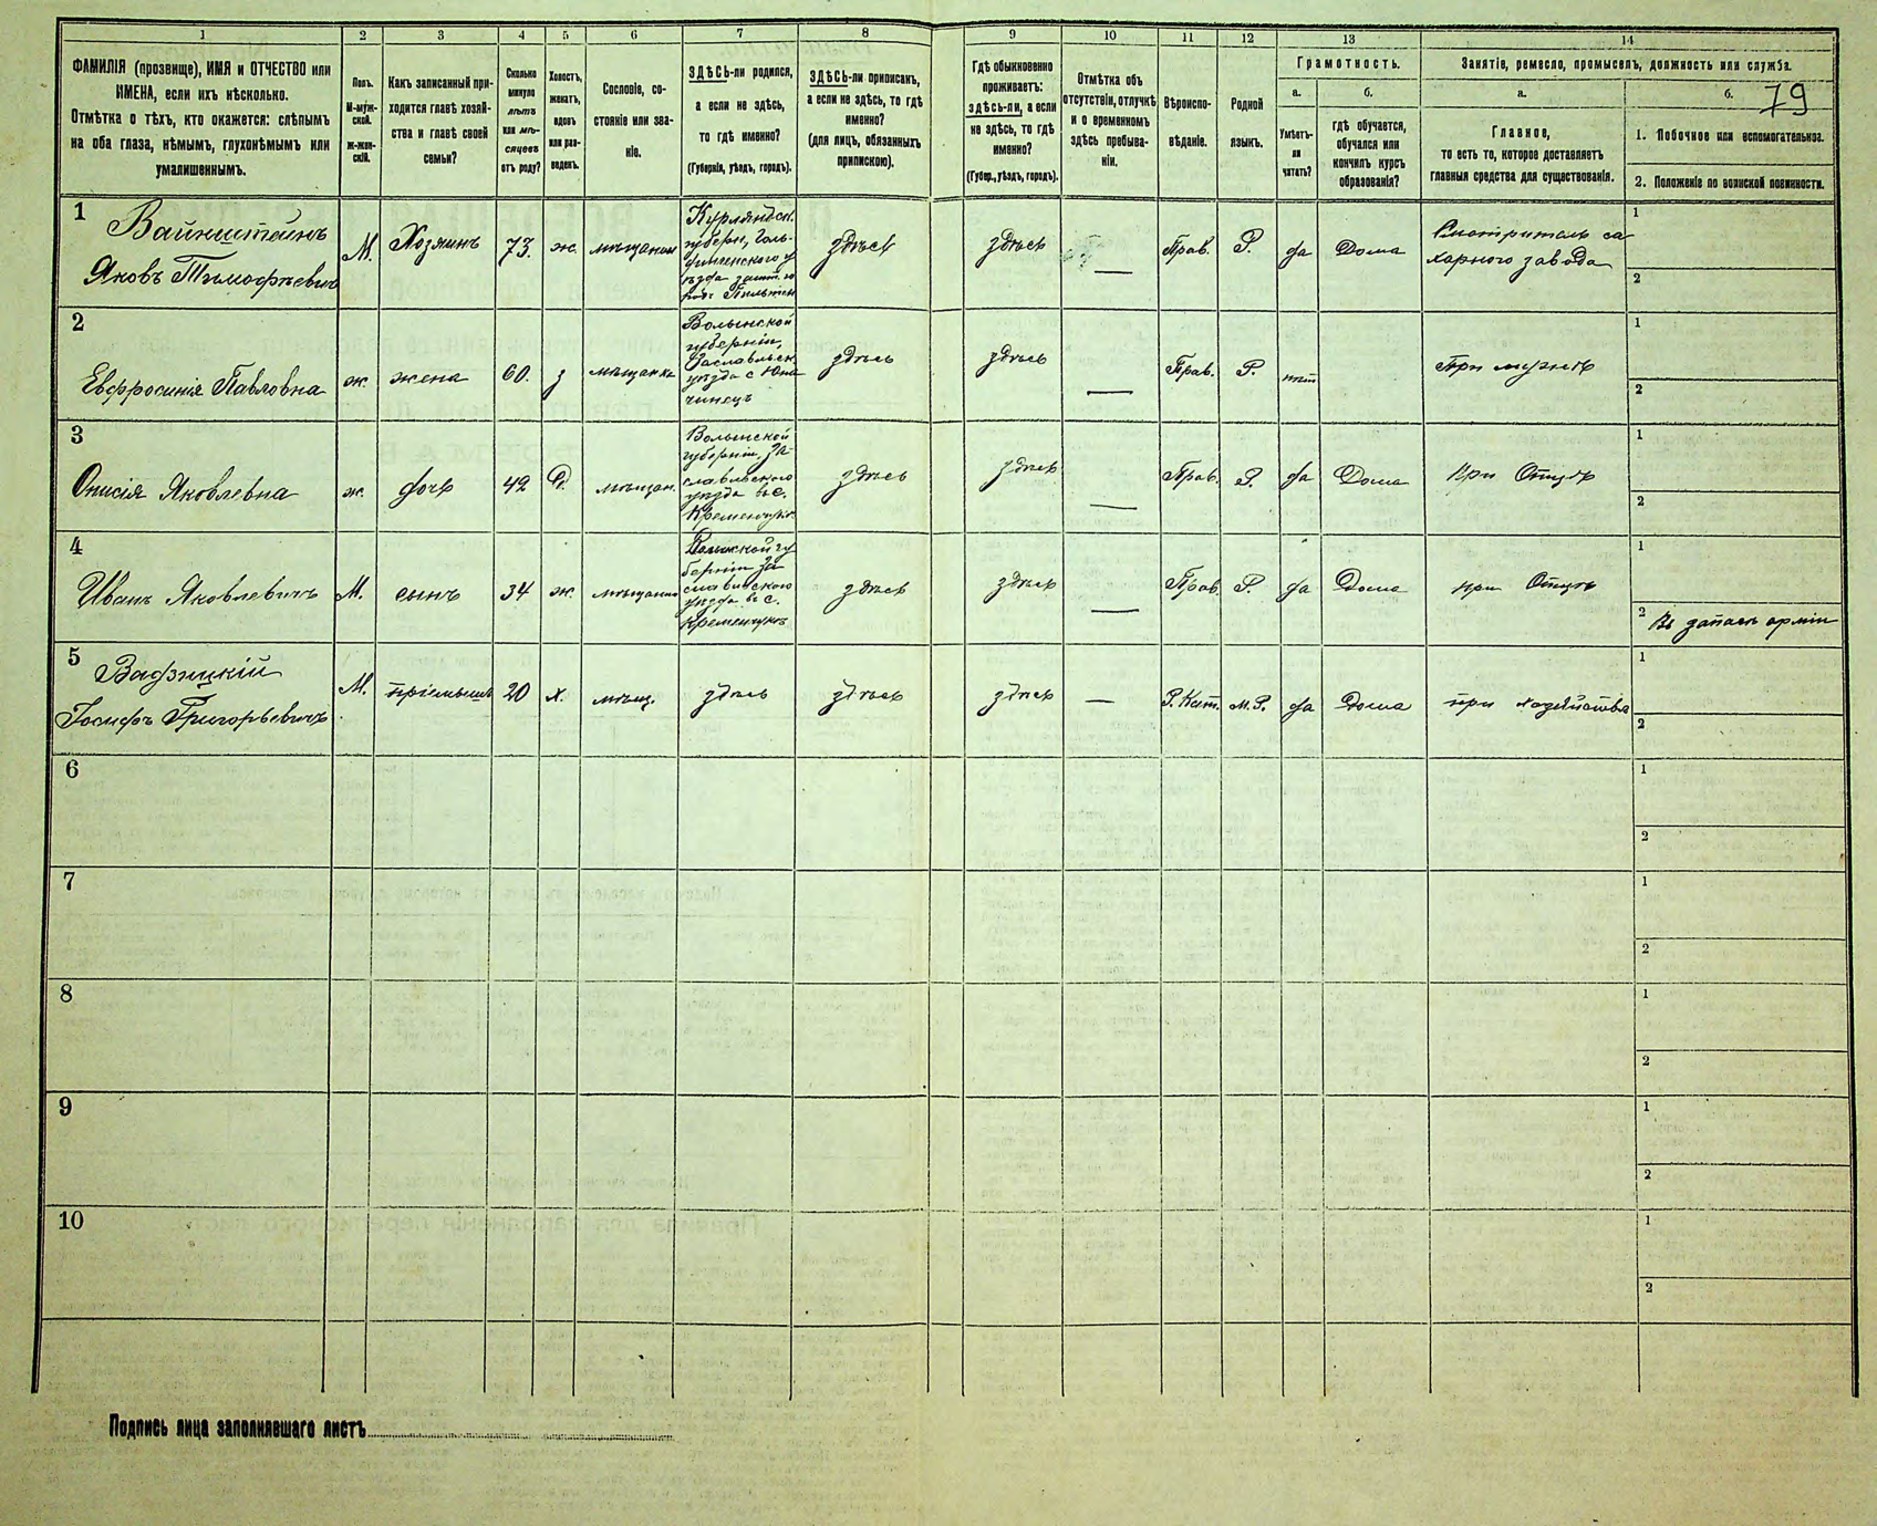 1 2 3 4 5 6 7 8 9 10 11 12 13 14
ФАМИЛІЯ (прозвище), ИМЯ и ОТЧЕСТВО или
ИМЕНА, если ихъ нѣсколько.
Отмѣтка о тѣхъ, кто окажется: слѣпымъ
на оба глаза, нѣмымъ, глухонѣмымъ или
умалишеннымъ.
Полъ.
М-муж-
ской.
ж-жен-
скій.
Какъ записанный при-
ходится главѣ хозяй-
ства и главѣ своей
семьи?
Сколько
минуло
лѣтъ
или мѣ-
сяцевъ
отъ роду?
Холостъ,
женатъ,
вдовъ
или раз-
веденъ.
Сословіе, со-
стояніе или зва-
ніе.
ЗДѢСЬ-ли родился,
а если не здѣсь,
то гдѣ именно?
(Губернія, уѣздъ, городъ).
ЗДѢСЬ-ли приписанъ,
а если не здѣсь, то гдѣ
именно?
(для лицъ, обязанныхъ
припискою).
Гдѣ обыкновенно
проживаетъ:
здѣсь-ли, а если
не здѣсь, то гдѣ
именно?
(Губер., уѣздъ, городъ).
Отмѣтка объ
отсутствіи, отлучкѣ
и о временномъ
здѣсь пребыва-
ніи.
Вѣроиспо-
вѣданіе.
Родной
языкъ.
Грамотность.
а.
Умѣетъ-
ли
читать?
б.
гдѣ обучается,
обучался или
кончилъ курсъ
образованія?
Занятіе, ремесло, промыселъ, должность или служба.
а.
Главное,
то есть то, которое доставляетъ
главныя средства для существованія.
б. 79
1. Побочное или вспомогательное.
2. Положеніе по воинской повинности.
1
Вайнштейнъ
Яковъ Тимофѣевич
М.
Хозяинъ
73.
ж.
мѣщанин
Курляндск.
губерн, Голь-
дингенского у
ѣзда
здѣсь
здѣсь
—
Прав.
Р.
да
Дома
Смотритель са
харного завода
1
2
2
Евфросинія Павловна
ж.
жена
60.
з
мѣщанка
Волынской
губерніи,
Заславльск.
уѣзда с Юна
чинецъ
здѣсь
здѣсь
—
Прав.
Р.
нѣт
При мужѣ
1
2
3
Онисія Яковлевна
ж.
дочь
42
Д.
мѣщан.
Волынской
губерніи, За-
славльского
уѣзда въ с.
здѣсь
здѣсь
—
Прав.
Р.
да
Дома
при Отцѣ
1
2
4
Иванъ Яковлевичъ
М.
сынъ
34
ж.
мѣщанин
Волынской гу
берніи За
славльского
уѣзда въ с.
Кременчукъ
здѣсь
здѣсь
—
Прав.
Р.
да
Дома
при Отцѣ
1
2 Въ запасѣ арміи
5
Вадзицкій
Іосифъ Григорьевичъ
М.
пріемышъ
20
х.
мѣщ.
здѣсь
здѣсь
здѣсь
—
Р. Кат.
м. Р.
да
Дома
при хозяйствѣ
1
2
6
1
2
7
1
2
8
1
2
9
1
2
10
1
2
Подпись лица заполнявшаго листъ